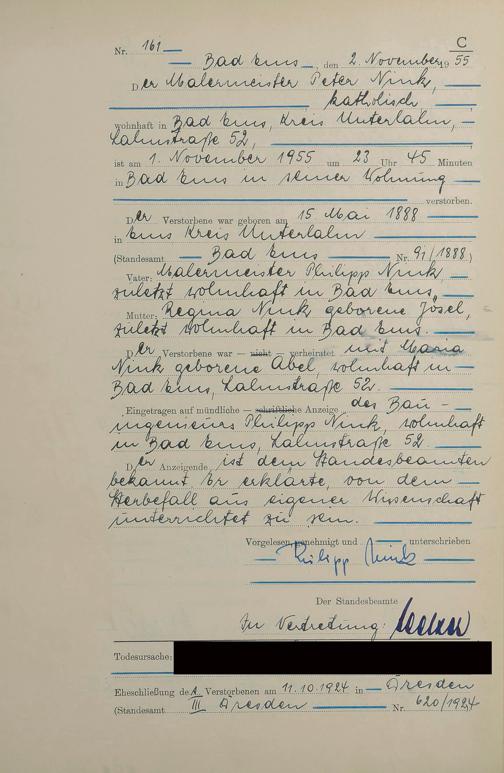 C
Nr. 161
Bad Ems, den 2. November 1955
Der Malermeister Peter Nink,
katholisch,
wohnhaft in Bad Ems, Kreis Unterlahn,
Lahnstraße 52,
ist am 1. November 1955 um 23 Uhr 45 Minuten
in Bad Ems in seiner Wohnung
verstorben.
Der Verstorbene war geboren am 15. Mai 1888
in Ems Kreis Unterlahn
(Standesamt Bad Ems Nr. 91/1888)
Vater: Malermeister Philipp Nink,
zuletzt wohnhaft in Bad Ems,
Mutter: Regina Nink geborene Jösel,
zuletzt wohnhaft in Bad Ems.
Der Verstorbene war – nicht – verheiratet mit Maria
Nink geborene Abel, wohnhaft in
Bad Ems, Lahnstraße 52.
Eingetragen auf mündliche – schriftliche Anzeige des Bau-
ingenieurs Philipp Nink, wohnhaft
in Bad Ems, Lahnstraße 52.
Der Anzeigende ist dem Standesbeamten
bekannt. Er erklärte, von dem
Sterbefall aus eigener Wissenschaft
unterrichtet zu sein.
Vorgelesen, genehmigt und unterschrieben
Philipp Nink
Der Standesbeamte
In Vertretung:
Todesursache:
Eheschließung des Verstorbenen am 11.10.1924 in Dresden
(Standesamt III Dresden Nr. 620/1924